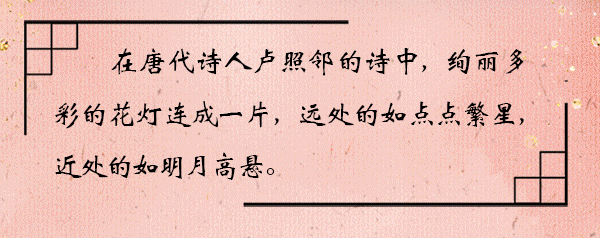 在唐代诗人卢照邻的诗中，绚丽多
彩的花灯连成一片，远处的如点点繁星，
近处的如明月高悬。